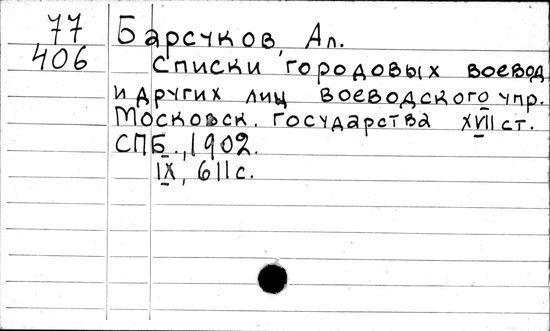 77 Барсуков, Ал.
406 Списки городовых воевод
и других лиц воеводского упр.
Московск. государства XVII ст.
СПБ., 1902.
IX, 611 с.